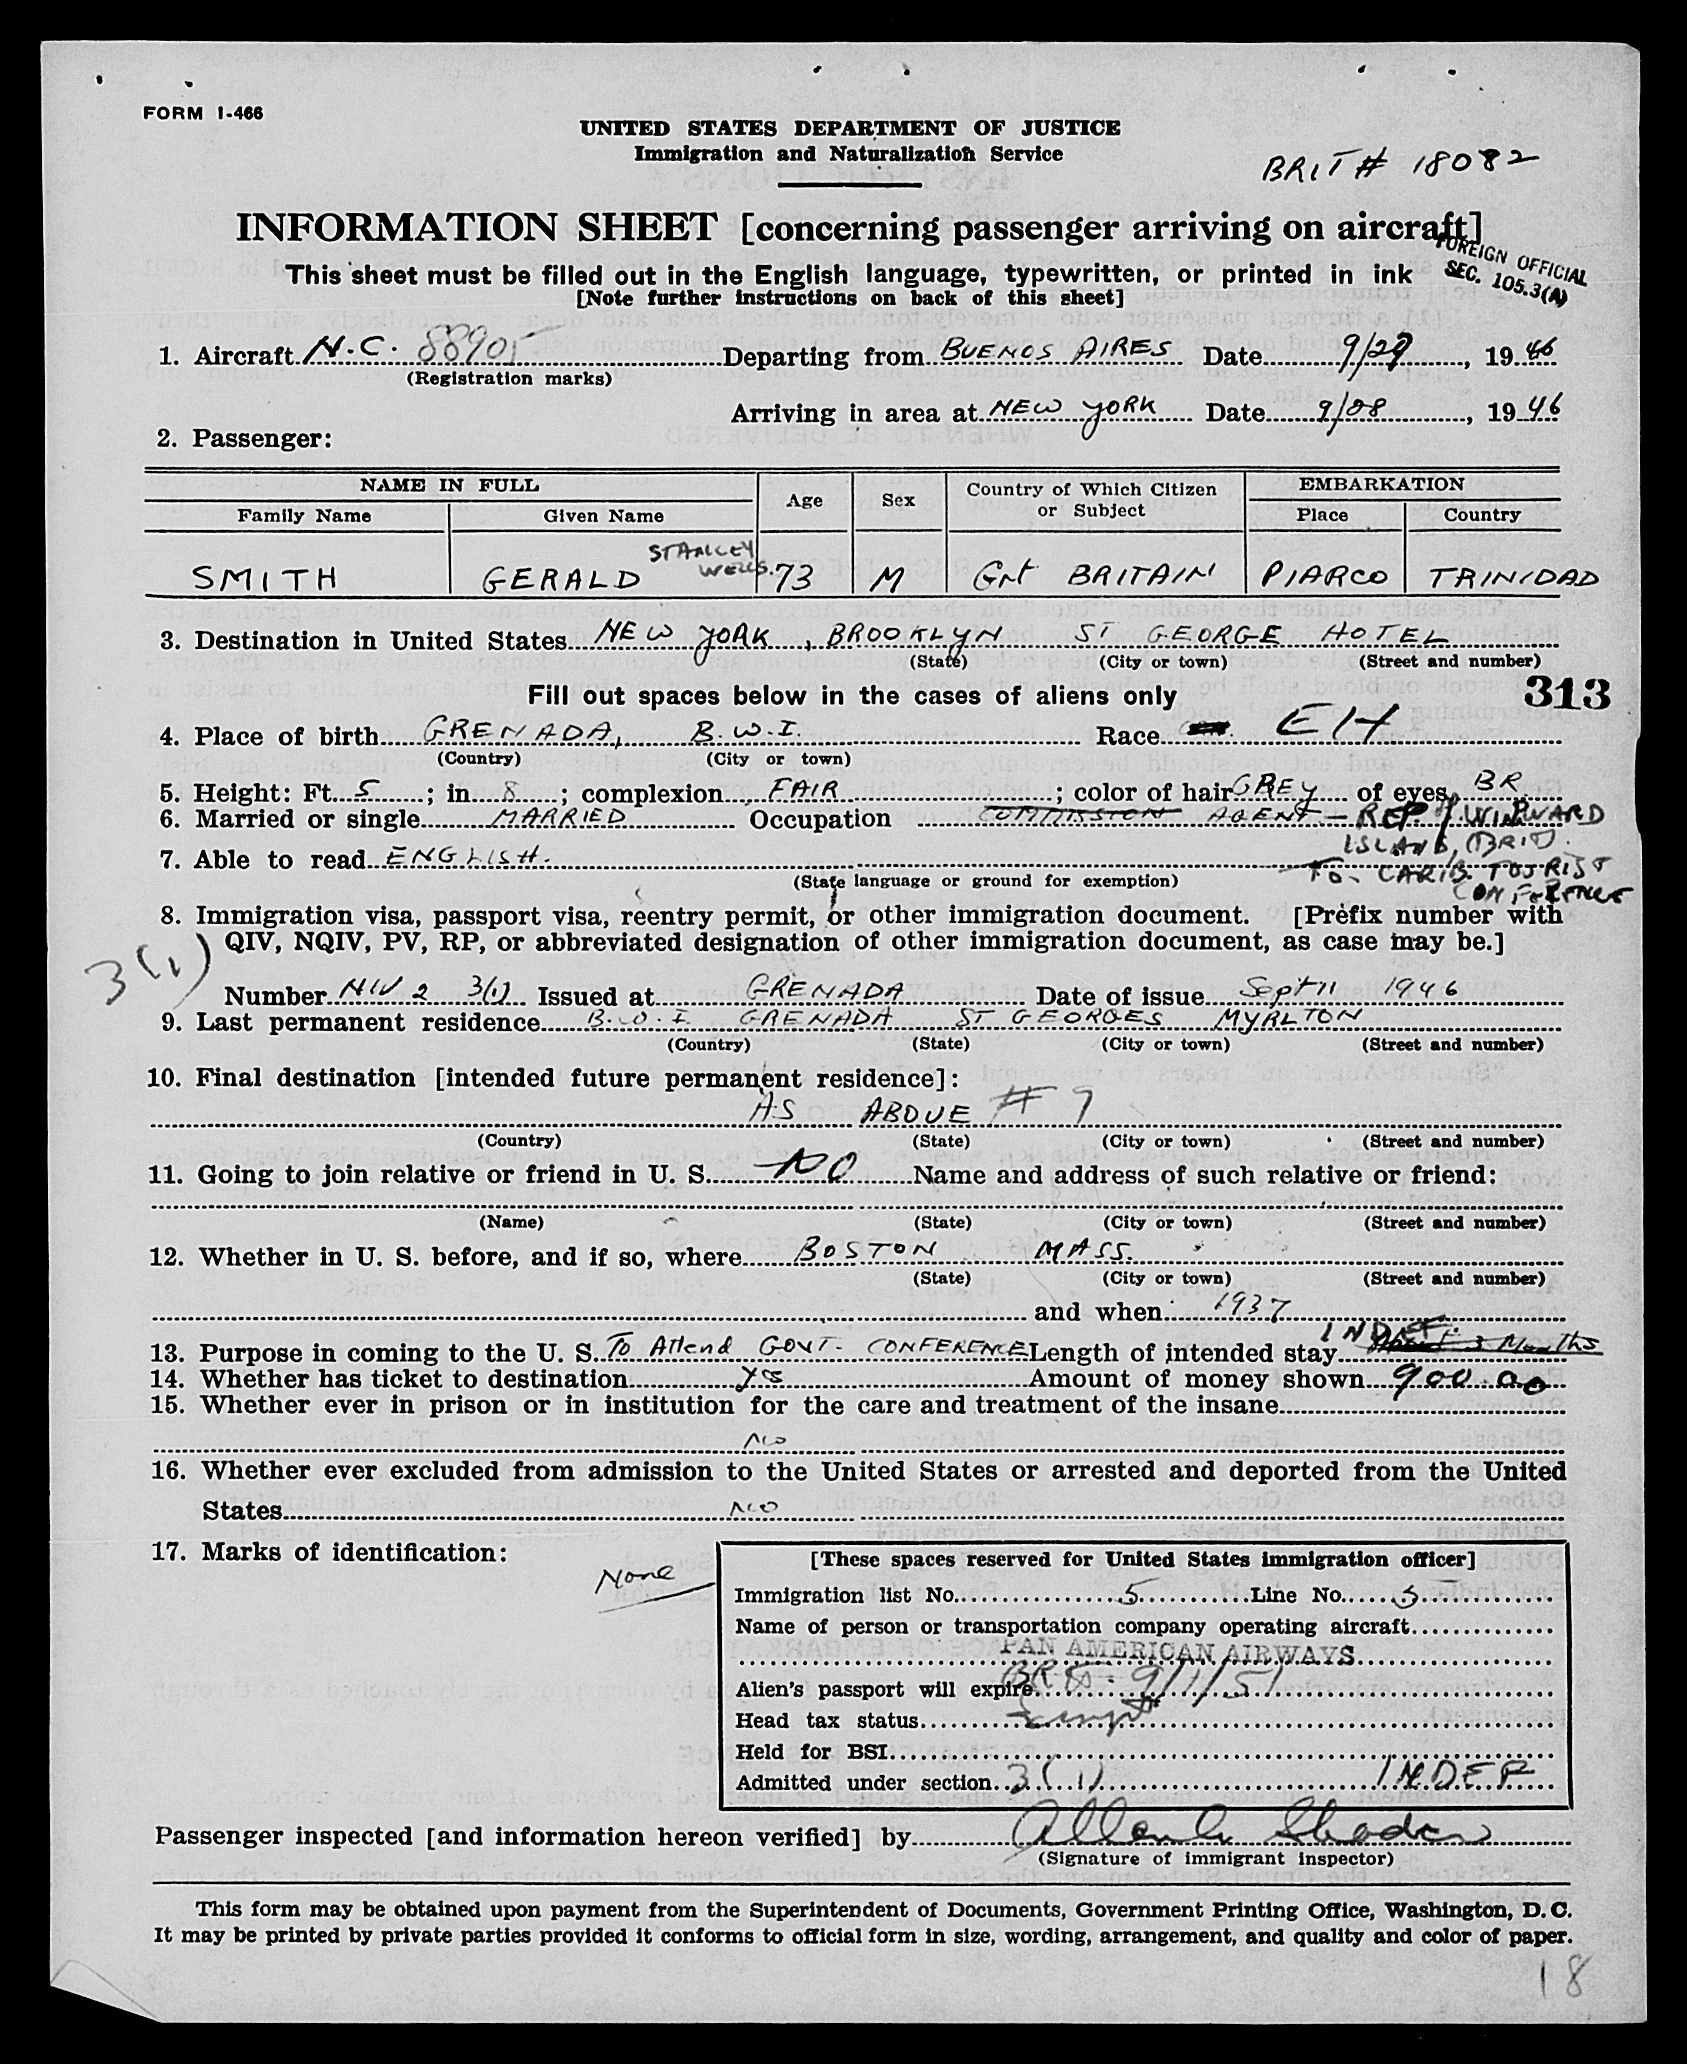 FORM I-466
UNITED STATES DEPARTMENT OF JUSTICE
Immigration and Naturalization Service
BRIT # 18082
INFORMATION SHEET [concerning passenger arriving on aircraft]
This sheet must be filled out in the English language, typewritten, or printed in ink
[Note further instructions on back of this sheet]
FOREIGN OFFICIAL
SEC. 105.3(A)
1. Aircraft N.C. 88905 Departing from BUENOS AIRES Date 9/27, 1946
(Registration marks)
Arriving in area at NEW YORK Date 9/28, 1946
2. Passenger:
NAME IN FULL Age Sex Country of Which Citizen or Subject EMBARKATION
Family Name Given Name Place Country
STANLEY
WELLS.
SMITH GERALD 73 M Grt BRITAIN PIARCO TRINIDAD
3. Destination in United States NEW YORK, BROOKLYN ST GEORGE HOTEL
(State) (City or town) (Street and number)
Fill out spaces below in the cases of aliens only 313
4. Place of birth GRENADA, B.W.I. Race EH
(Country) (City or town)
5. Height: Ft. 5; in. 8; complexion FAIR; color of hair GREY of eyes BR.
6. Married or single MARRIED Occupation COMMISSION AGENT – REP WINWARD
ISLAND, (BRIT).
7. Able to read ENGLISH.
TO CARIB. TOURIST
CONFERENCE
(State language or ground for exemption)
8. Immigration visa, passport visa, reentry permit, or other immigration document. [Prefix number with
QIV, NQIV, PV, RP, or abbreviated designation of other immigration document, as case may be.]
3(1)
Number NIV 2 3(1) Issued at GRENADA Date of issue Sept 11 1946
9. Last permanent residence B.W.I. GRENADA ST GEORGES MYRLTON
(Country) (State) (City or town) (Street and number)
10. Final destination [intended future permanent residence]:
AS ABOVE # 9
(Country) (State) (City or town) (Street and number)
11. Going to join relative or friend in U. S. NO Name and address of such relative or friend:
(Name) (State) (City or town) (Street and number)
12. Whether in U. S. before, and if so, where BOSTON MASS.
(State) (City or town) (Street and number)
and when 1937
INDEF.
13. Purpose in coming to the U. S. To Attend GOVT. CONFERENCE Length of intended stay 3 Months
14. Whether has ticket to destination Yes Amount of money shown 900.00
15. Whether ever in prison or in institution for the care and treatment of the insane
NO
16. Whether ever excluded from admission to the United States or arrested and deported from the United
States NO
17. Marks of identification:
None
[These spaces reserved for United States immigration officer]
Immigration list No. 5 Line No. 5
Name of person or transportation company operating aircraft
PAN AMERICAN AIRWAYS
Alien's passport will expire 9/1/51
Head tax status Exempt
Held for BSI
Admitted under section 3(1) INDEF
Passenger inspected [and information hereon verified] by
(Signature of immigrant inspector)
This form may be obtained upon payment from the Superintendent of Documents, Government Printing Office, Washington, D. C.
It may be printed by private parties provided it conforms to official form in size, wording, arrangement, and quality and color of paper.
18